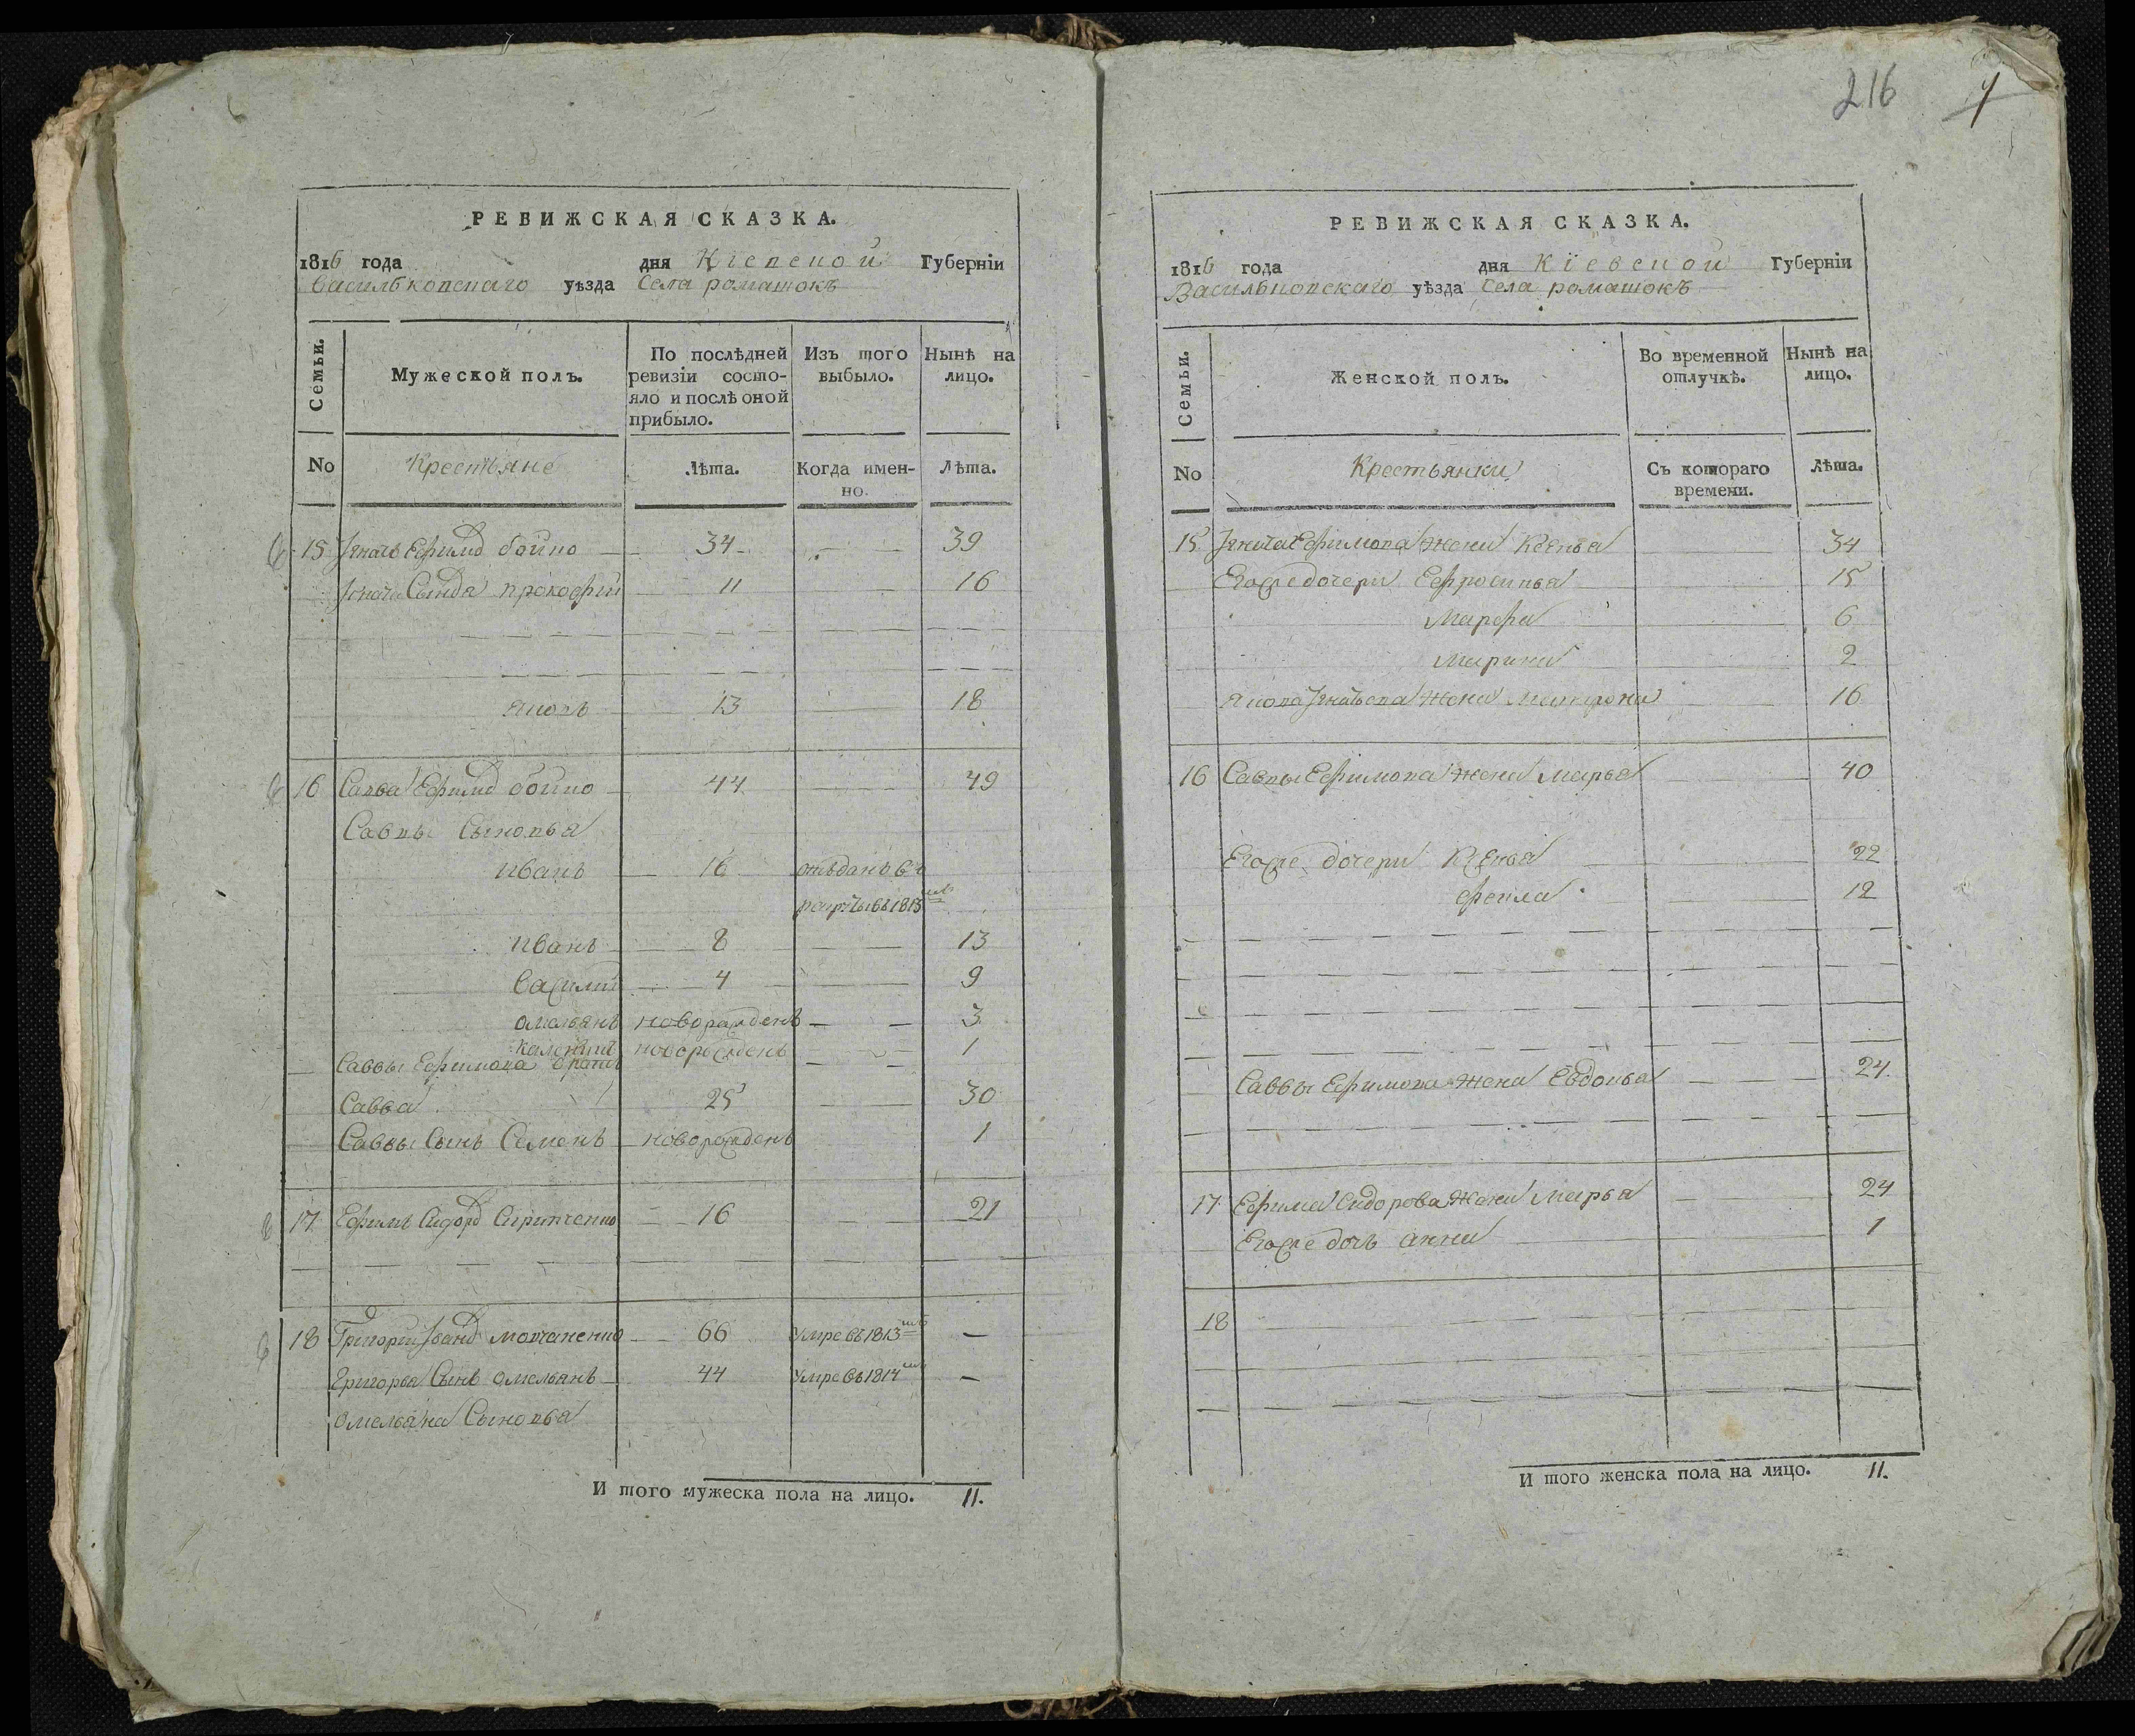 216
РЕВИЖСКАЯ СКАЗКА.
1816 года дня Кіевской Губерніи
Васильковскаго уѣзда Села ромашокъ
Семьи.
Мужеской полъ.
По послѣдней ревизіи состо-
яло и послѣ оной прибыло.
Изъ того выбыло.
Нынѣ на лицо.
No Крестьяне Лѣта. Когда имен-
но. Лѣта.
15 Игнатъ Ефимов бойко 34 39
Игната Сынъя прокофій 11 16
яковъ 13 18
16 Савва Ефимов бойко 44 49
Саввы Сыновья
иванъ 16 отъданъ въ
рекруты въ 1813
иванъ 8 13
василий 4 9
омельянъ новорожденъ 3
новорожденъ 1
Саввы Ефимова братъ
Савва 25 30
Саввы Сынъ Семенъ новорожденъ 1
17 Ефимъ Сидоров 16 21
18 Григорий Иванов молчаненко 66 Умре въ 1813
Григорья Сынъ омельянъ 44 Умре въ 1814
омельяна Сыновья
И того мужеска пола на лицо. 11.
РЕВИЖСКАЯ СКАЗКА.
1816 года дня Кіевской Губерніи
Васильковскаго уѣзда Села ромашокъ
Семьи.
Женской полъ.
Во временной отлучкѣ.
Нынѣ на лицо.
No Крестьянки Съ котораго
времени. Лѣта.
15 Игната Ефимова жена Ксенья 34
Егоже дочери Ефросинья 15
Марфа 6
Марина 2
якова Игнатьева жена Матрона 16
16 Саввы Ефимова жена Марья 40
Егоже дочери Ксенья 22
фекла 12
Саввы Ефимова жена Евдокья 24
17 Ефима Сидорова жена Марья 24
Егоже дочь анна 1
18
И того женска пола на лицо. 11.